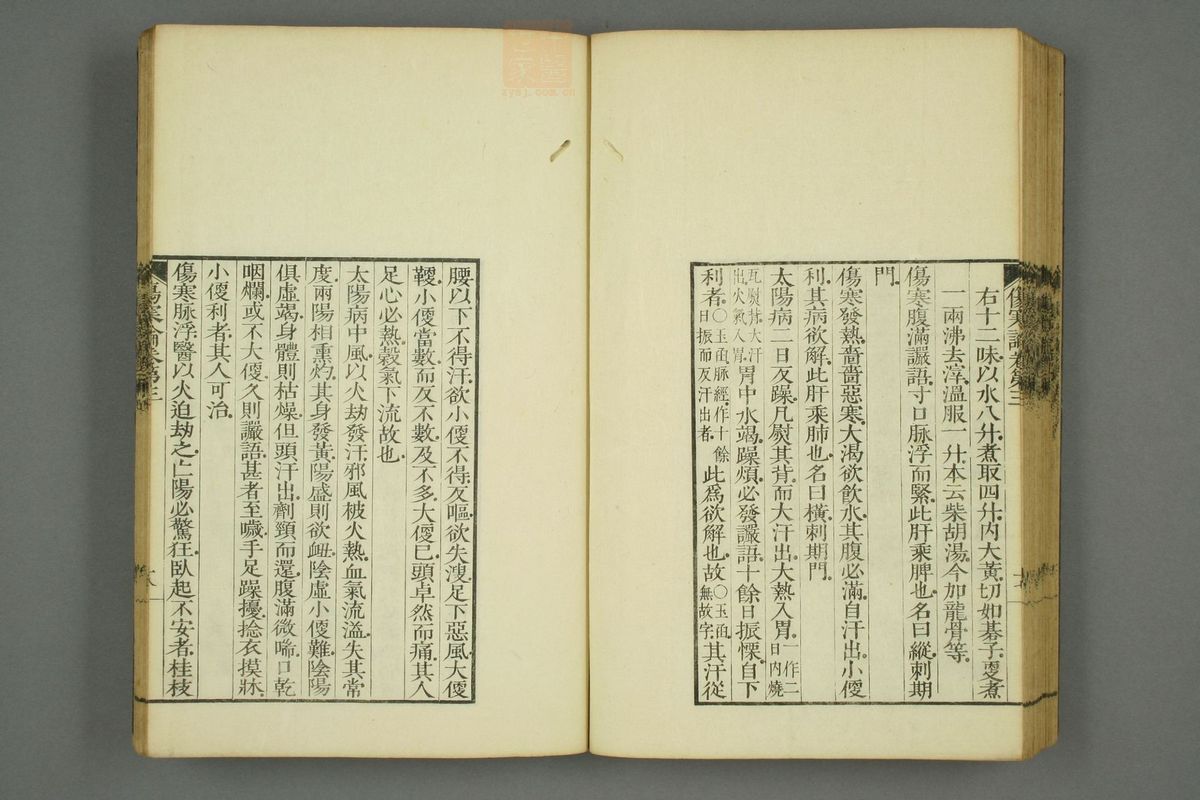 傷寒論卷第三
右十二味以水八升煮取四升内大黃切如碁子更煮
一兩沸去滓溫服一升本云柴胡湯今加龍骨等
傷寒腹滿讝語寸口脉浮而緊此肝乘脾也名曰縱刺期
門
傷寒發熱嗇嗇惡寒大渴欲飲水其腹必滿自汗出小便
利其病欲解此肝乘肺也名曰橫刺期門
太陽病二日反躁凡熨其背而大汗出大熱入胃一作二日內燒
瓦熨背大汗出火氣入胃胃中水竭躁煩必發讝語十餘日振慄自下
利者〇玉函脉經作十餘日振而反汗出者此爲欲解也故〇玉函無故字其汗從
腰以下不得汗欲小便不得反嘔欲失溲足下惡風大便
鞕小便當數而反不數及不多大便已頭卓然而痛其人
足心必熱穀氣下流故也
太陽病中風以火劫發汗邪風被火熱血氣流溢失其常
度兩陽相熏灼其身發黃陽盛則欲衄陰虛小便難陰陽
俱虛竭身體則枯燥但頭汗出劑頸而還腹滿微喘口乾
咽爛或不大便久則讝語甚者至噦手足躁擾捻衣摸牀
小便利者其人可治
傷寒脉浮醫以火迫劫之亡陽必驚狂臥起不安者桂枝
傷寒論卷第三
zysj.com.cn